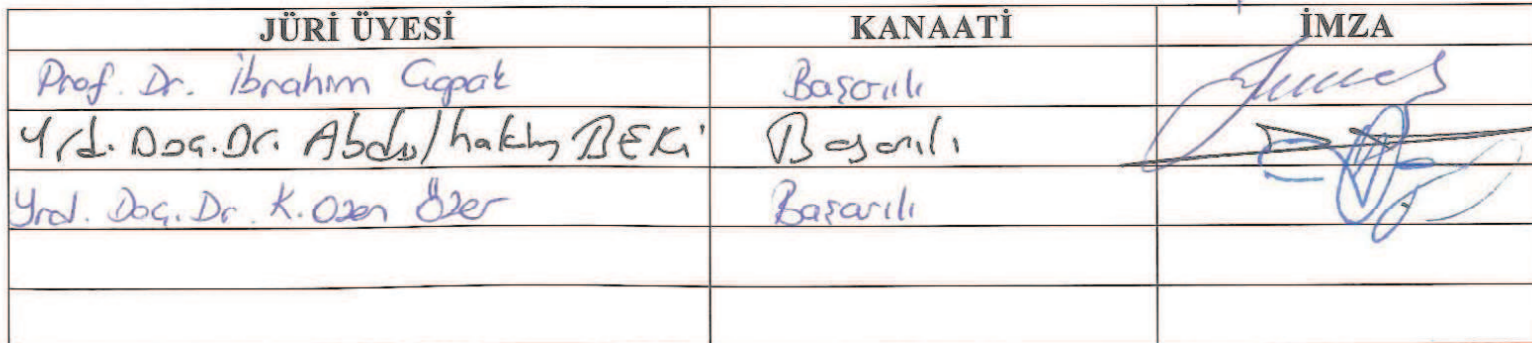 JÜRİ ÜYESİ KANAATİ İMZA
Prof. Dr. İbrahim Çapak Başarılı
Yrd. Doç. Dr. Abdulhakim BEKİ Başarılı
Yrd. Doç. Dr. K. Ozan Özer Başarılı